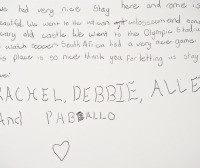 we had very nice stay here and rome is
beautiful. We went to the vatican colosseum and
scary old castle. We went to the Olympic Stadiu
watch soccer. South Africa had a very nice game.
is place is so nice thank you for letting us stay
RACHEL, DEBBIE, ALLE
And PABALLO